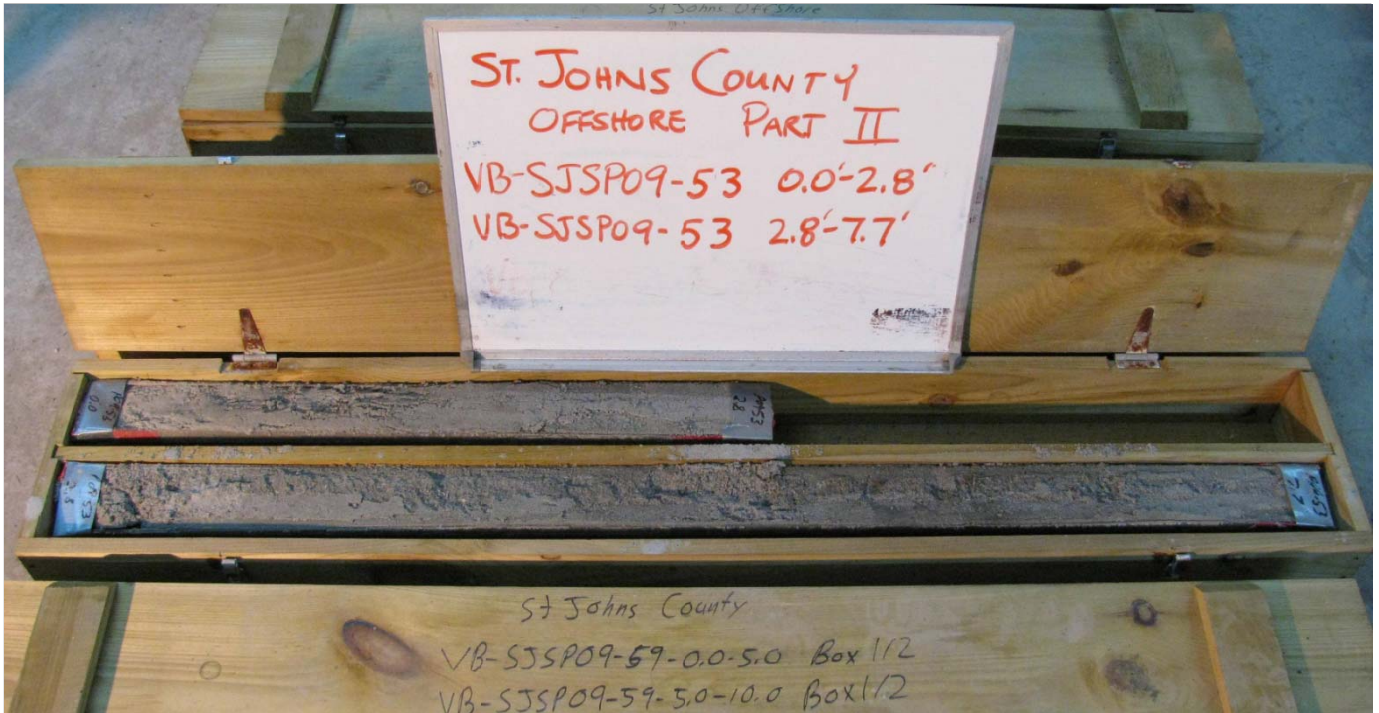 St Johns Offshore
ST. JOHNS COUNTY
OFFSHORE PART II
VB-SJSP09-53 0.0'-2.8'
VB-SJSP09-53 2.8'-7.7'
0.0
2.8
2.8
7.7
St Johns County
VB-SJSP09-59-0.0-5.0 Box 1/2
VB-SJSP09-59-5.0-10.0 Box 1/2